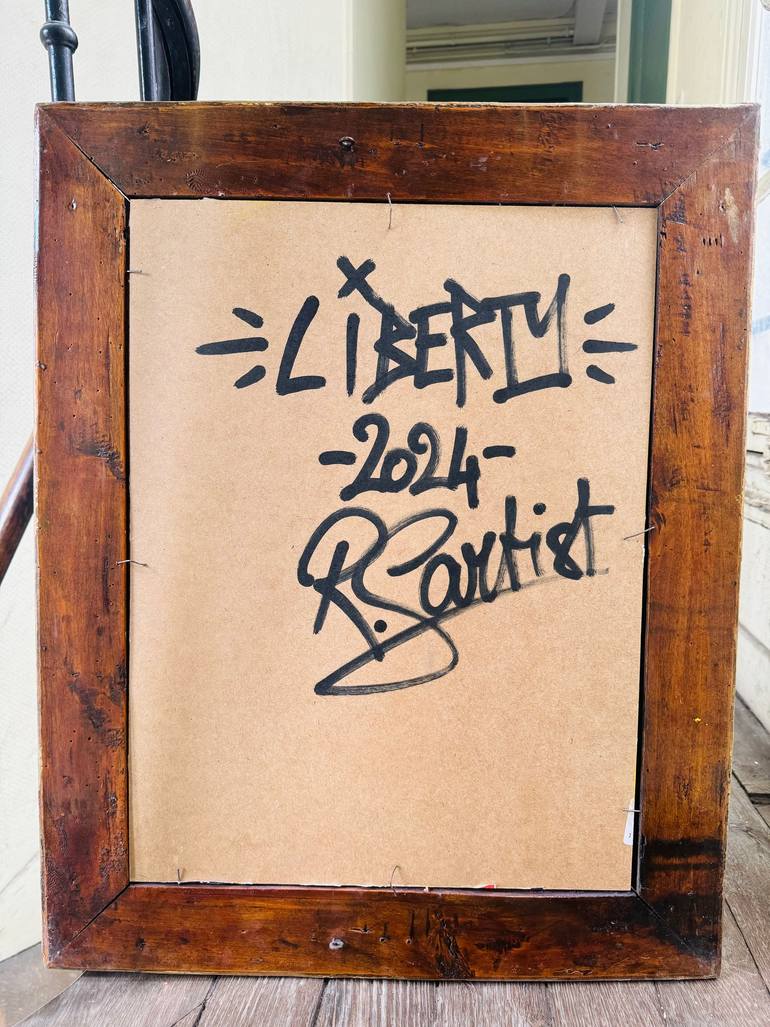 LiBERTY
-2024-
R.Sartist